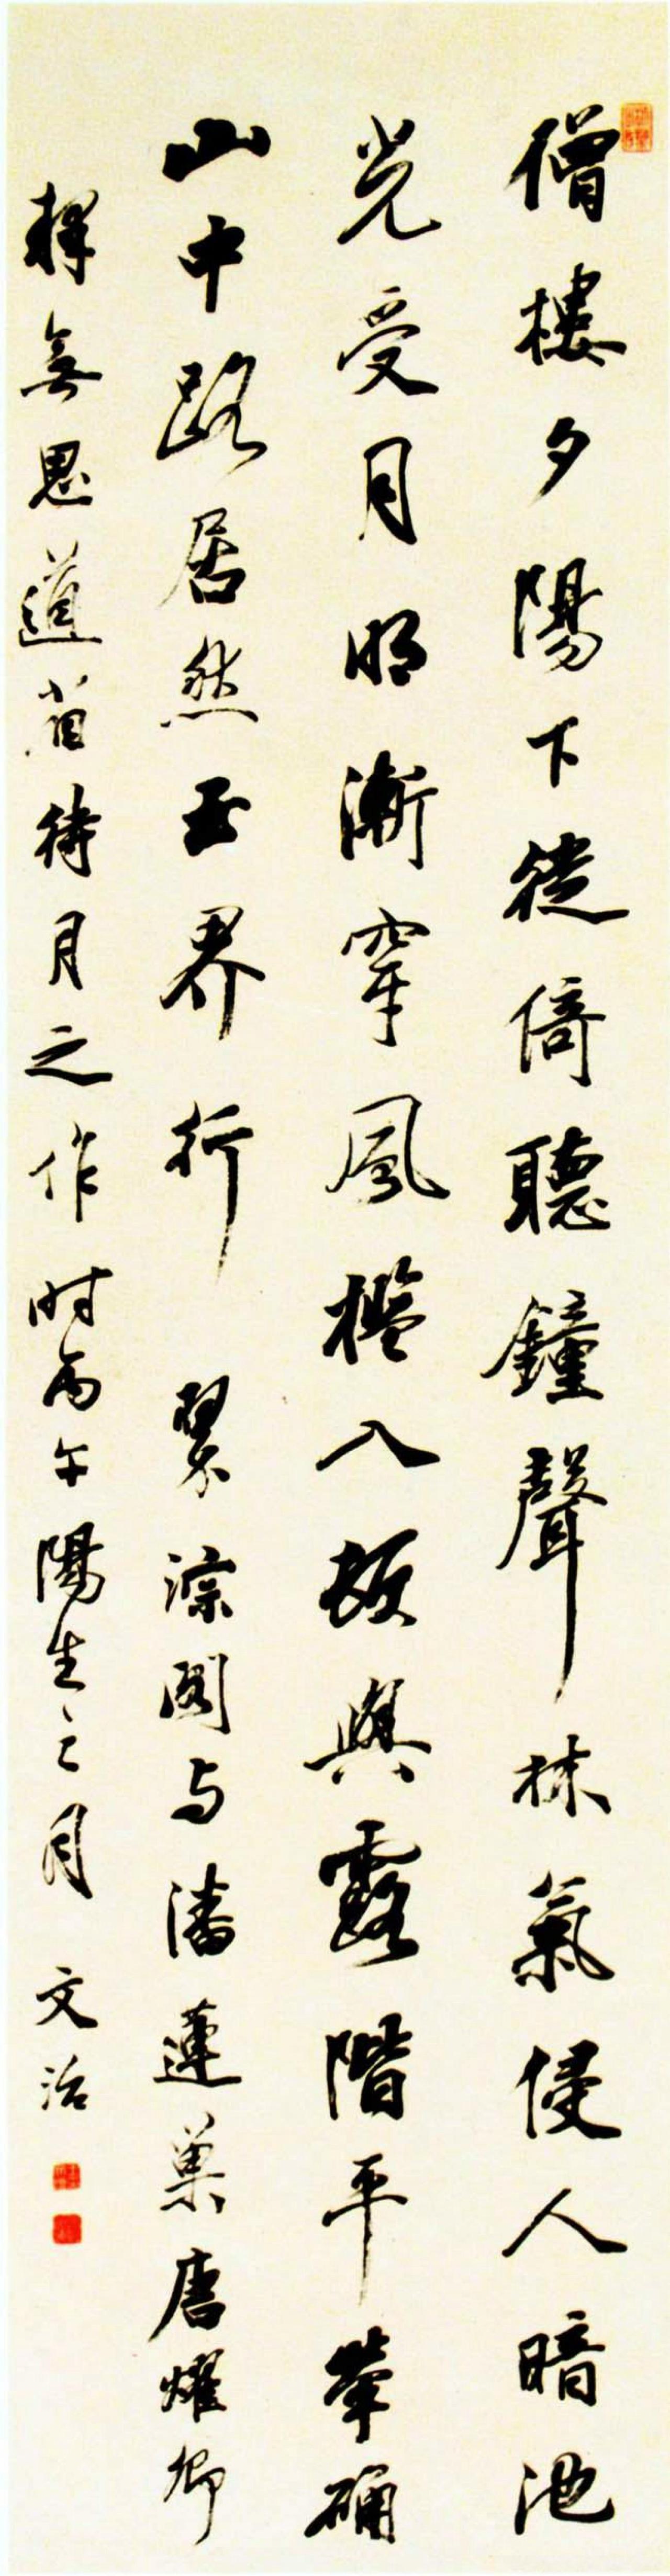 僧樓夕陽下徙倚聽鐘聲林氣侵人暗池
光受月明漸穿風檻入故與露階平犖确
山中路居然玉界行 翠淙閣与潘蓮巢唐耀卿
釋無思道者待月之作时丙午陽生之月 文治